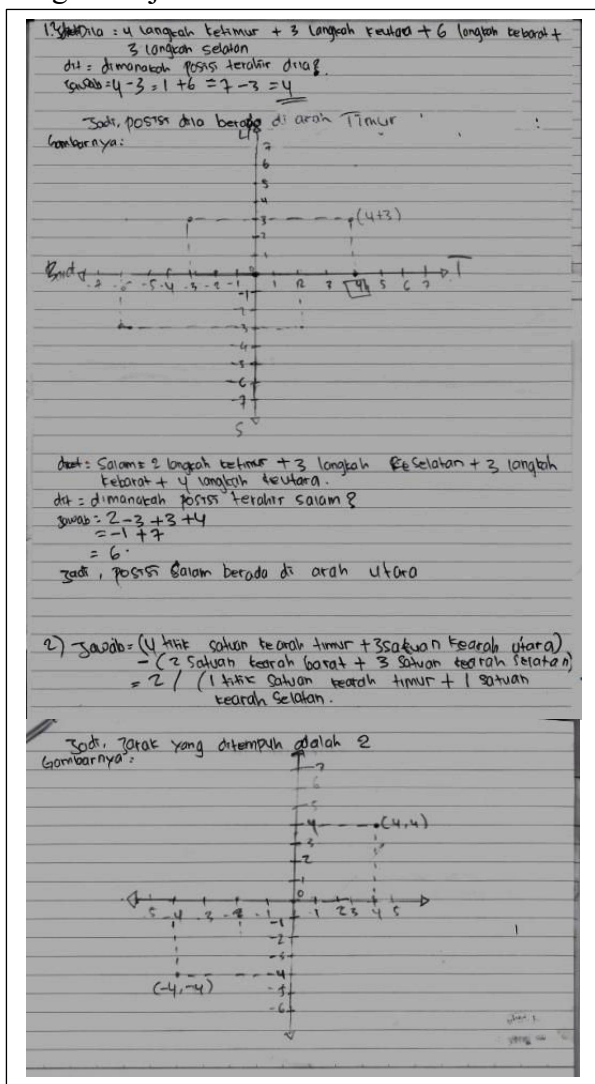 1. Dila = 4 langkah ketimur + 3 langkah keutara + 6 langkah kebarat +
3 langkah selatan
dit = dimanakah posisi terahir dila?
jawab = 4 - 3 = 1 + 6 = 7 - 3 = 4
Jadi, posisi dila berada di arah Timur
Gambarnya:
7
6
5
4
3
2
1
(4+3)
T
-5 -4 -3 -2 -1
1 2 3 4 5 6 7
-1
-2
-3
-4
-5
-6
-7
S
Salam = 2 langkah ketimur + 3 langkah keselatan + 3 langkah
kebarat + 4 langkah keutara.
dit = dimanakah posisi terahir salam?
jawab = 2 - 3 + 3 + 4
= -1 + 7
= 6.
Jadi, posisi Salam berada di arah utara
2) Jawab = (4 titik satuan kearah timur + 3 satuan kearah utara)
- (2 satuan kearah barat + 3 satuan kearah selatan)
= 2 / (1 titik satuan kearah timur + 1 satuan
kearah selatan.
Jadi, Jarak yang ditempuh adalah 2
Gambarnya:
7
6
5
4
(4,4)
3
2
1
0
5 -4 -3 -2 -1
1 2 3 4 5
-1
-2
-3
-4
(-4,-4)
-5
-6